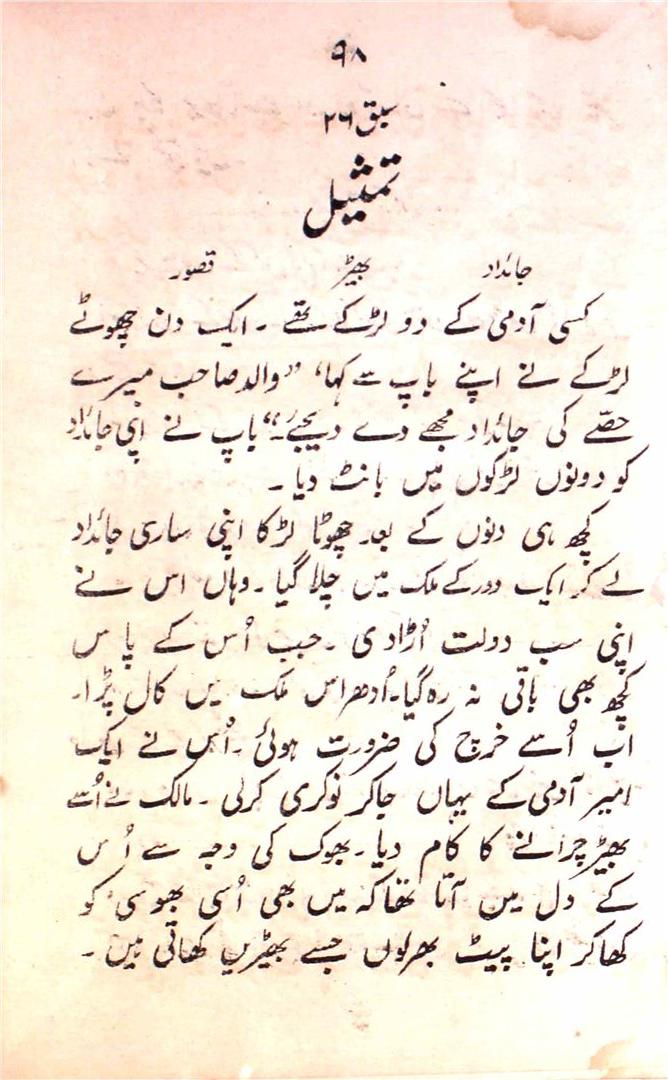 ۹۸
سبق ۲۶
تمثیل
جائداد بھیڑ قصور
کسی آدمی کے دو لڑکے تھے ۔ ایک دن چھوٹے
لڑکے نے اپنے باپ سے کہا، ”والد صاحب میرے
حصّے کی جائداد مجھے دے دیجئے۔“ باپ نے اپنی جائداد
کو دونوں لڑکوں میں بانٹ دیا ۔
کچھ ہی دنوں کے بعد چھوٹا لڑکا اپنی ساری جائداد
لے کر ایک دور کے ملک میں چلا گیا ۔ وہاں اس نے
اپنی سب دولت اُڑا دی ۔ جب اُس کے پاس
کچھ بھی باقی نہ رہ گیا۔ اُدھر اس ملک میں کال پڑا۔
اب اُسے خرچ کی ضرورت ہوئی ۔ اُس نے ایک
امیر آدمی کے یہاں جاکر نوکری کرلی ۔ مالک نے اُسے
بھیڑ چرانے کا کام دیا ۔ بھوک کی وجہ سے اُس
کے دل میں آتا تھا کہ میں بھی اُسی بھوسی کو
کھا کر اپنا پیٹ بھرلوں جسے بھیڑیں کھاتی ہیں ۔